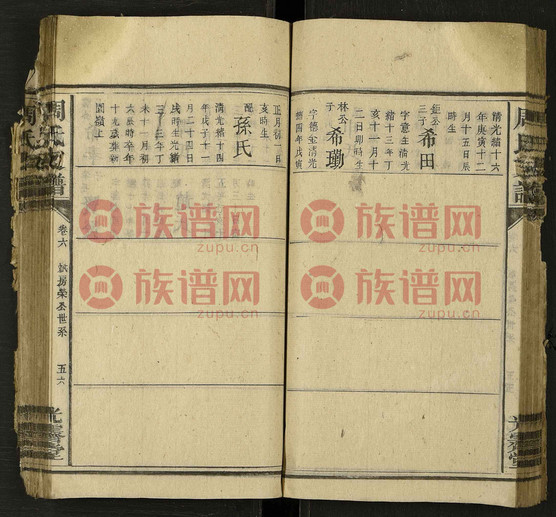 清光緒十六
年庚寅十二
月十五日辰
時生
鉦公
三子
希田
字意圭清光
緒十三年丁
亥十一月十
二日卯時生
林公
子
希瑜
字德金清光
緒四年戊寅
正月初十日
亥時生
配
孫氏
清光緒十四
年戊子十一
月二十四日
戌時生光緒
三十三年丁
未十一月初
六辰時卒年
十九歲葬新
園嶺上
周氏支譜
卷六
榮公世系
五六
光霽堂
族谱网
zupu.cn
族谱网
zupu.cn
族谱网
zupu.cn
族谱网
zupu.cn